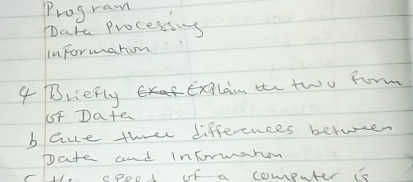 Program
Data processing
information
4 Briefly Explain the two form
of Data
b Give three differences between
Data and Information
speed of a computer is